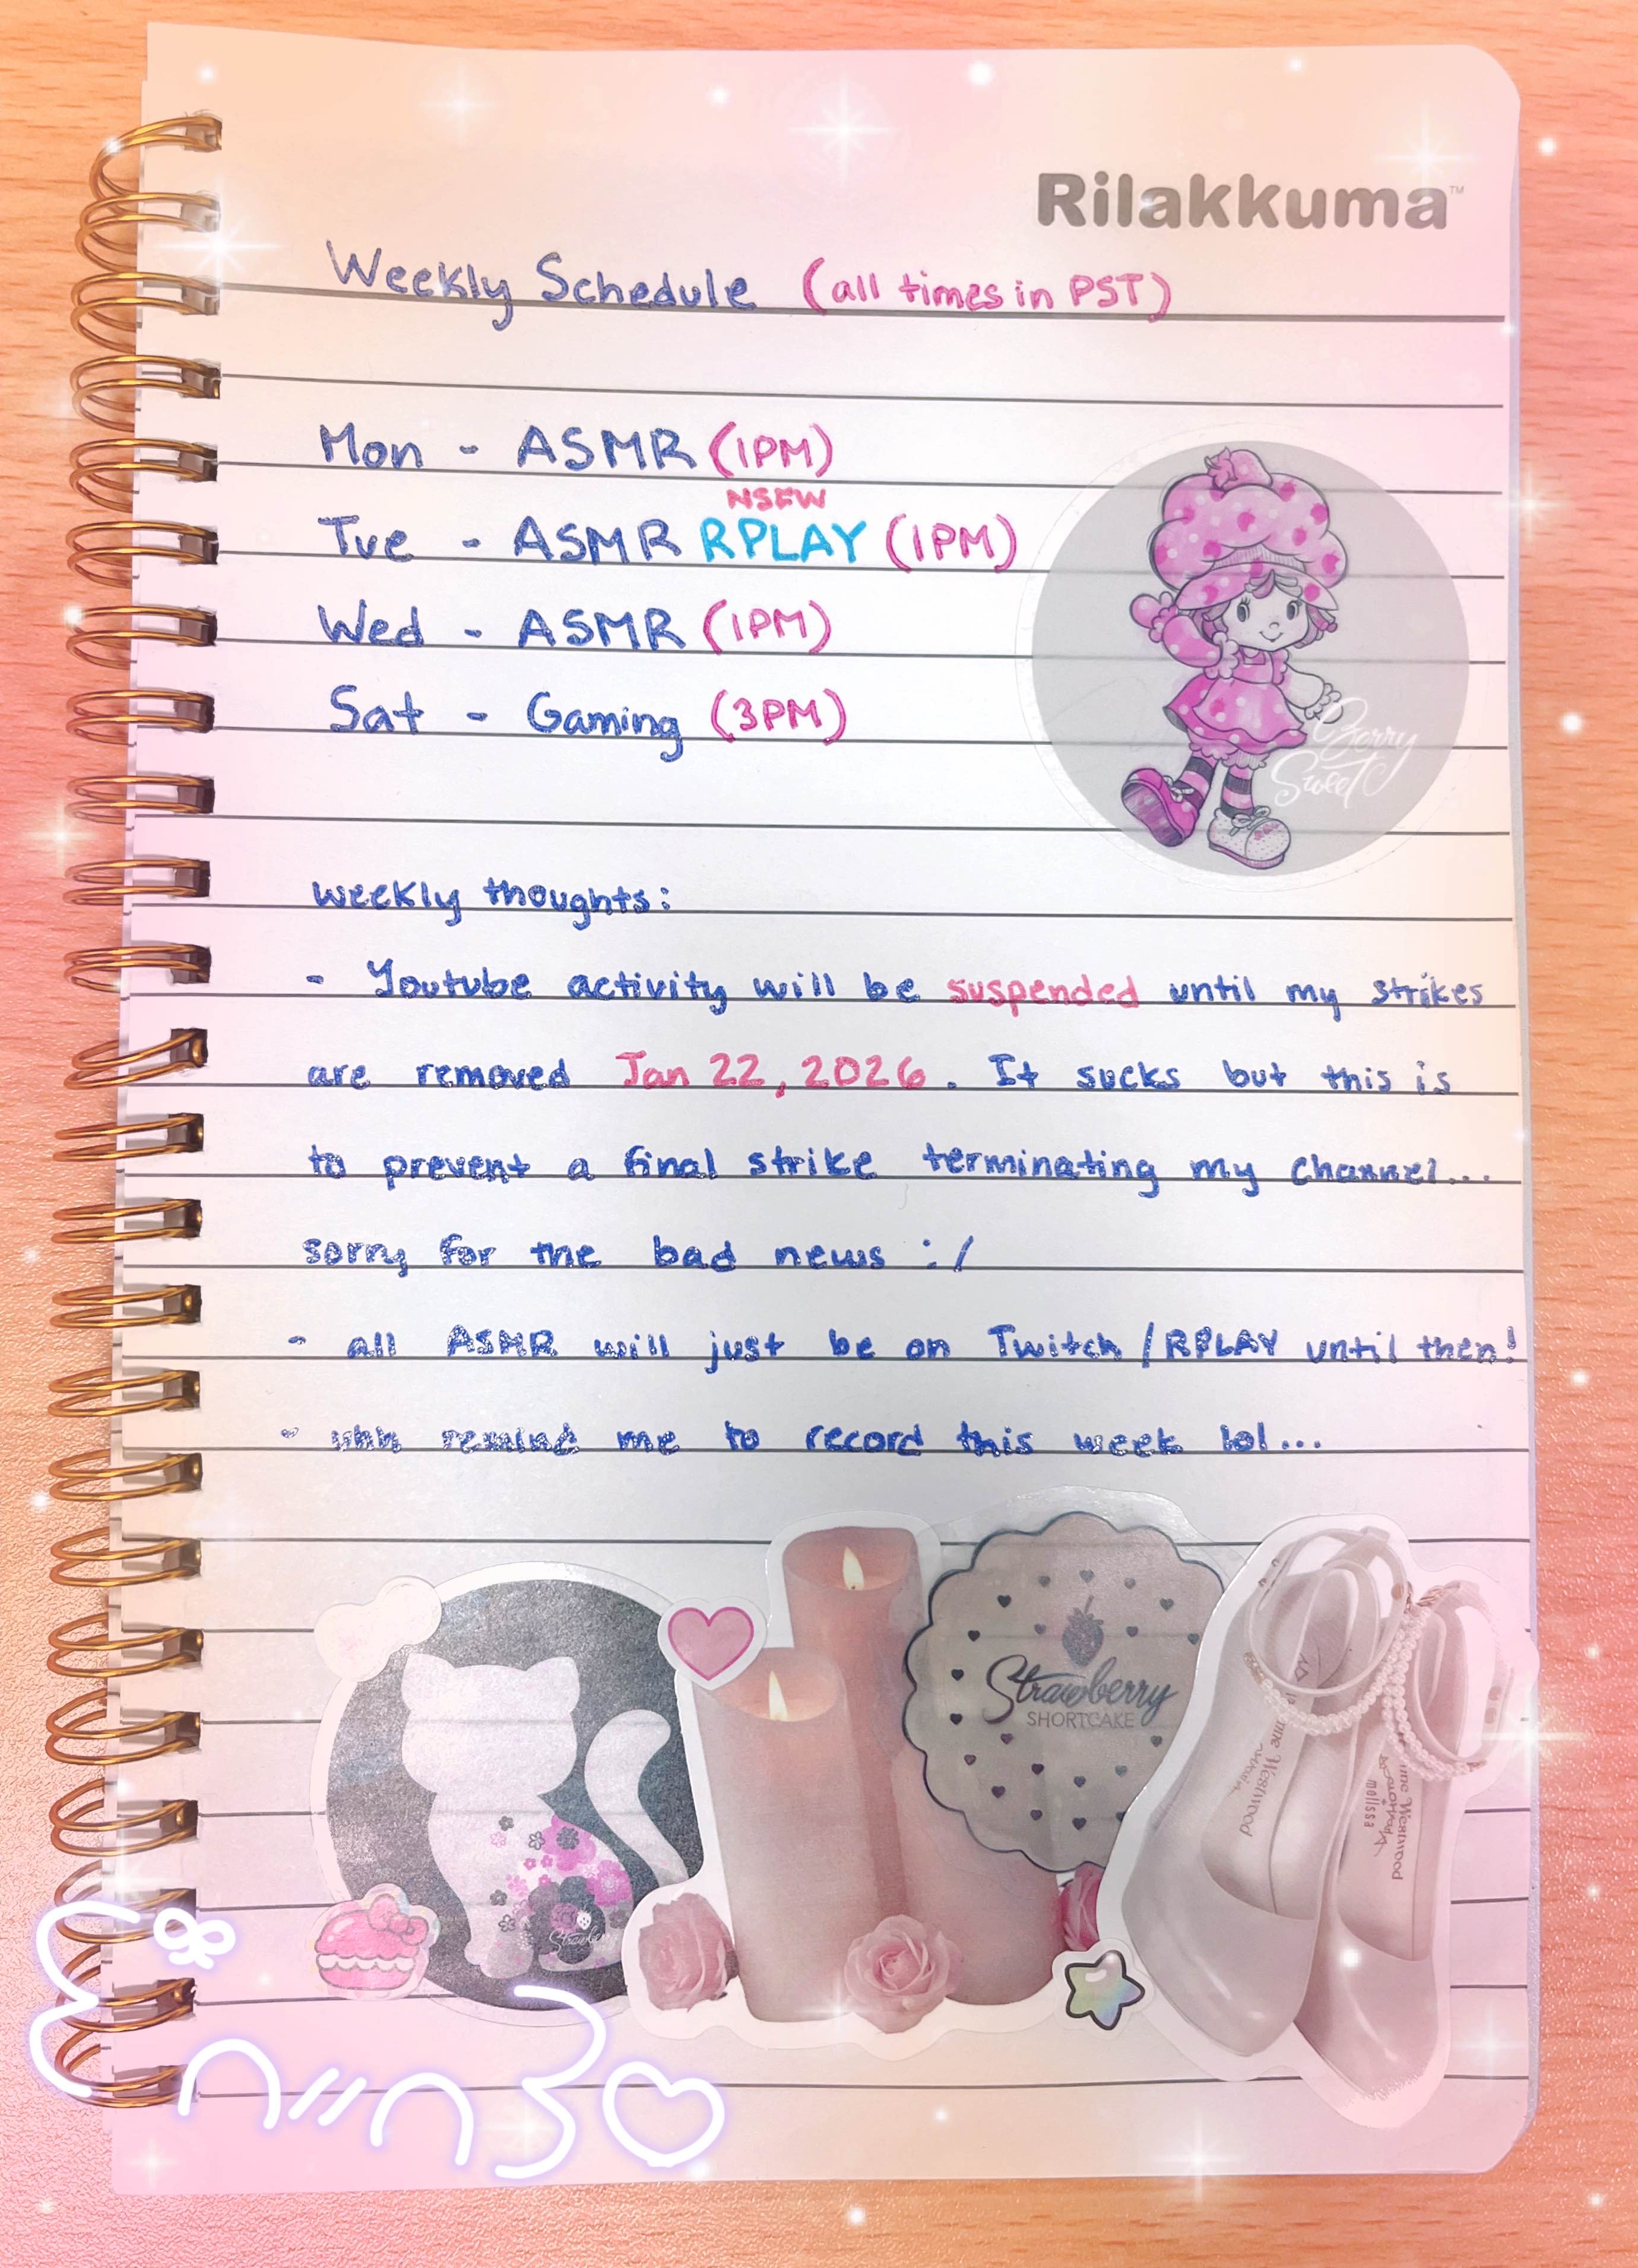 Rilakkuma™
Weekly Schedule (all times in PST)
Mon - ASMR (1PM)
NSFW
Tue - ASMR RPLAY (1PM)
Wed - ASMR (1PM)
Sat - Gaming (3PM)
Berry
Sweet
weekly thoughts:
- Youtube activity will be suspended until my strikes
are removed Jan 22, 2026. It sucks but this is
to prevent a final strike terminating my channel...
sorry for the bad news :/
- all ASMR will just be on Twitch/RPLAY until then!
- uhh remind me to record this week lol...
Strawberry
SHORTCAKE
Westwood
Westwood
melissa